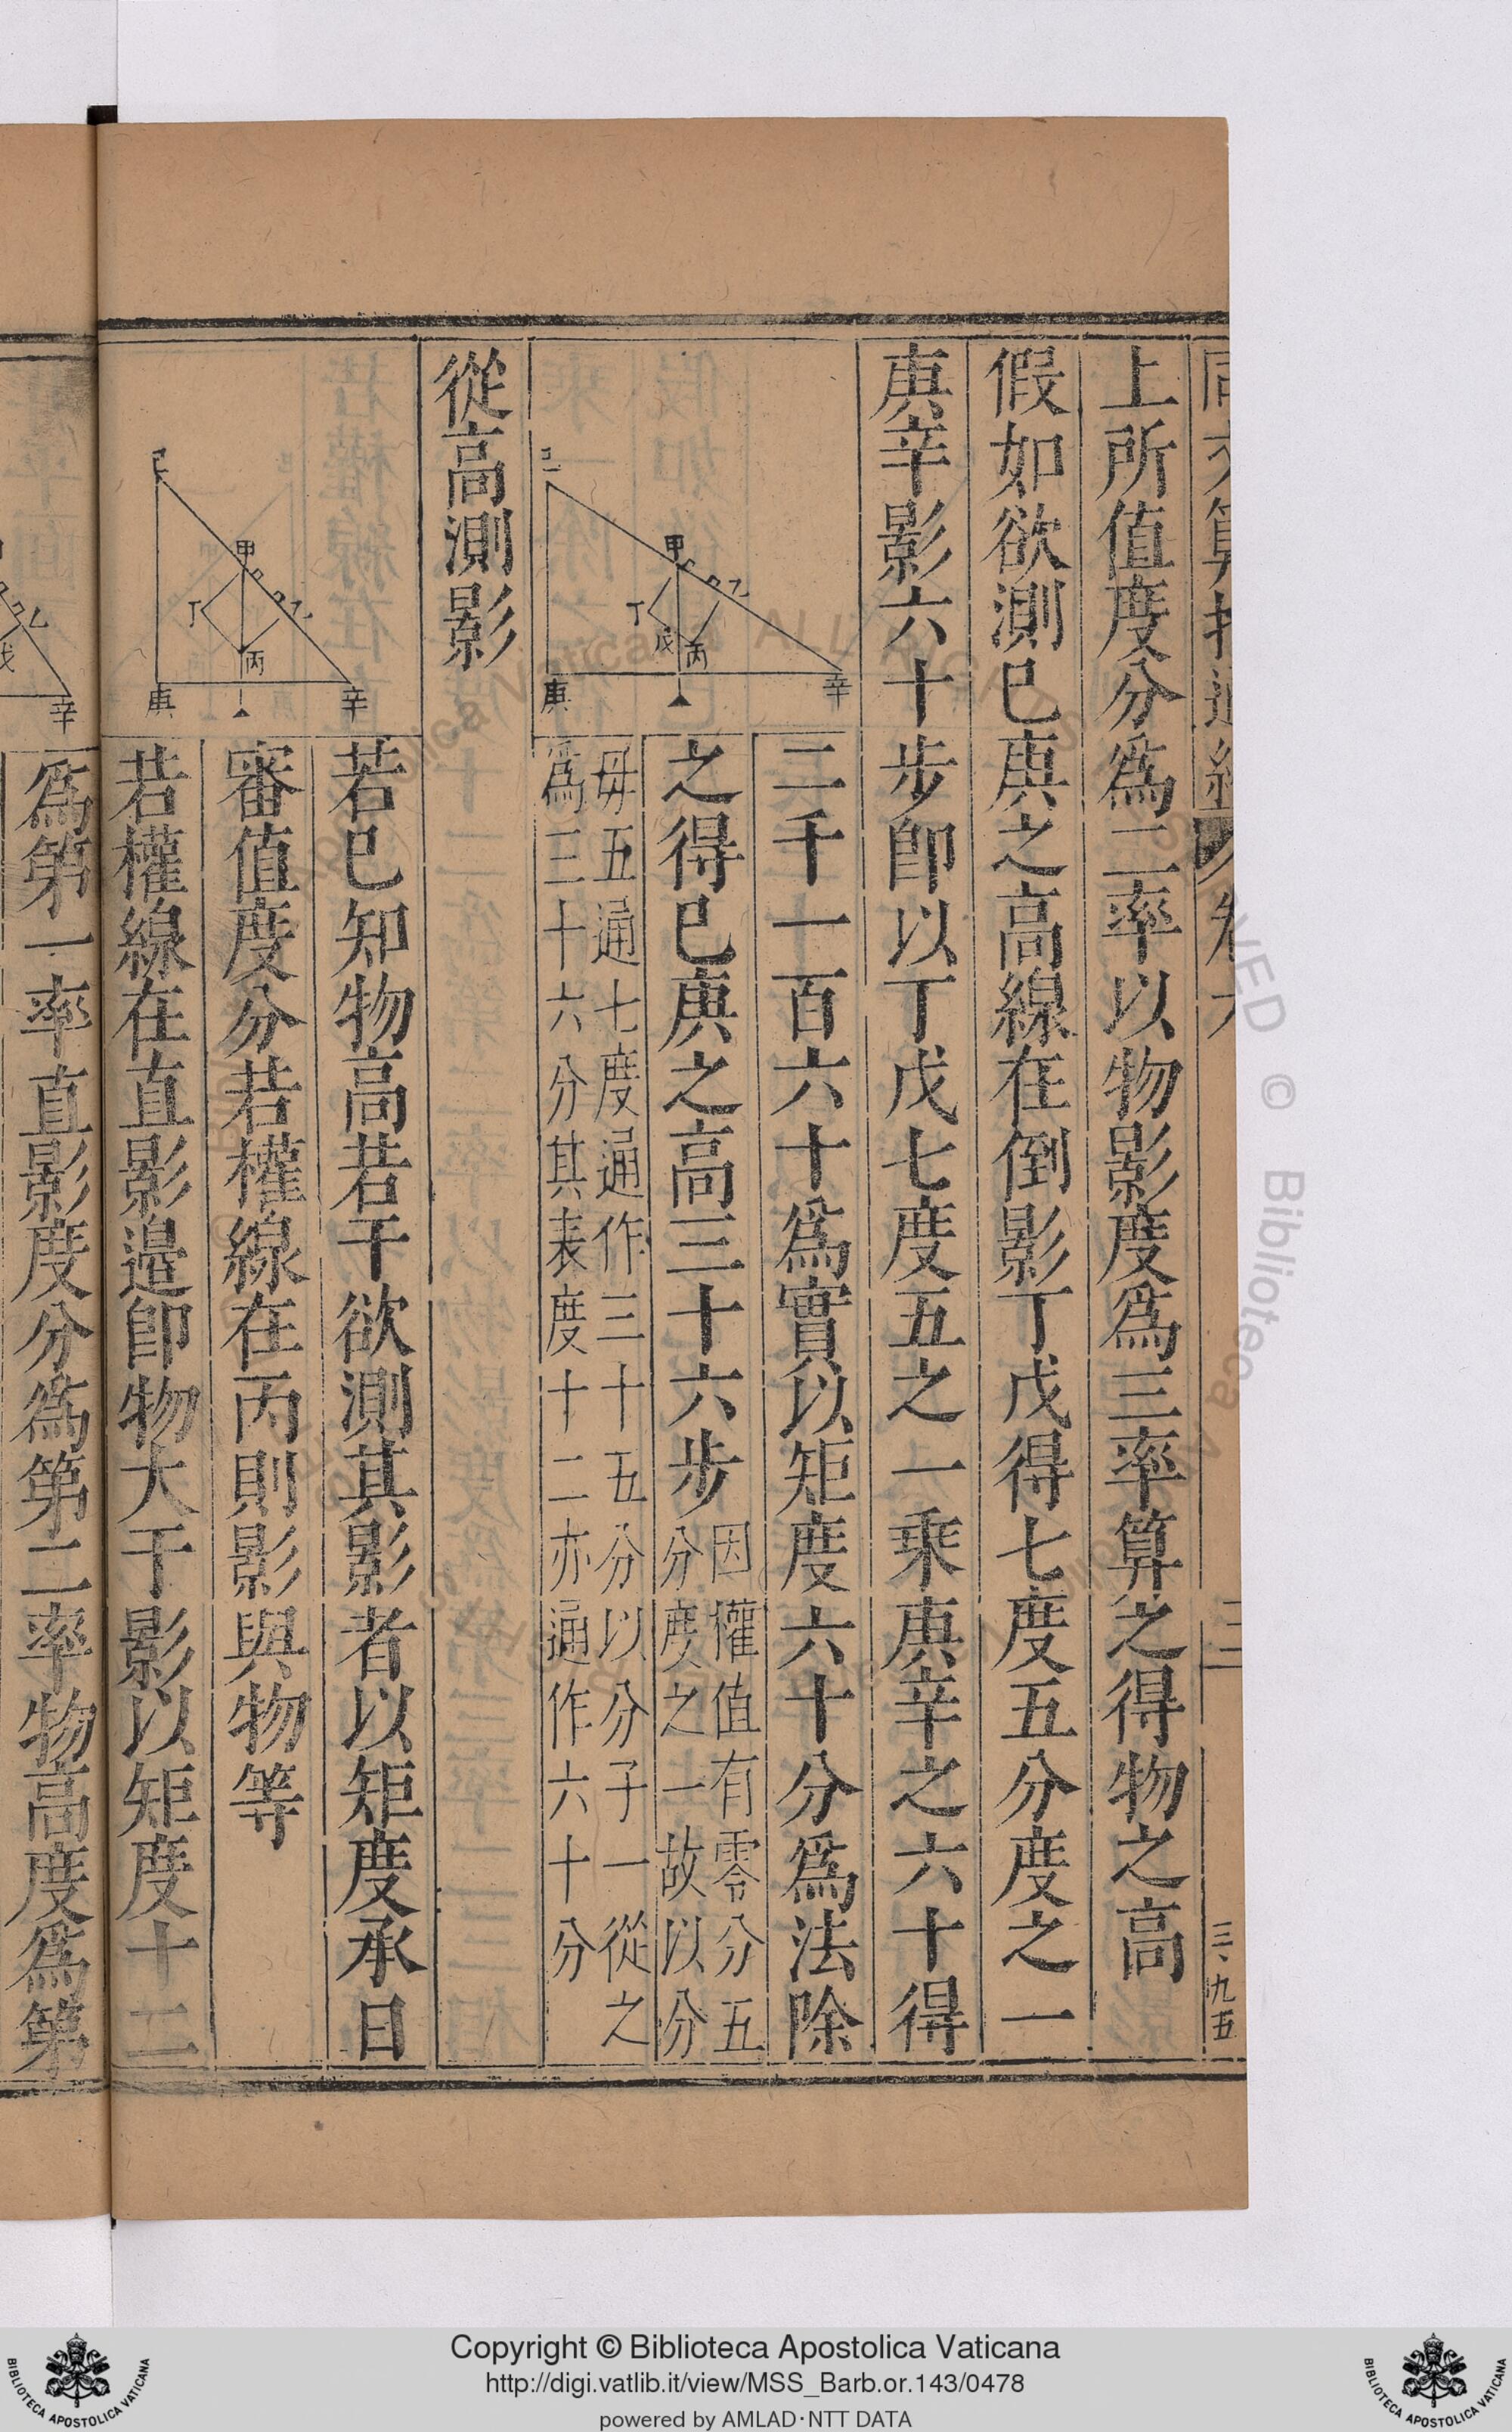 上所值度分爲二率以物影度爲三率算之得物之高
假如欲測已庚之高線在倒影丁戊得七度五分度之一
庚辛影六十步卽以丁戊七度五之一乘庚辛之六十得
二千一百六十爲實以矩度六十分爲法除
之得已庚之高三十六步
因權值有零分五
分度之一故以分
毋五通七度通作三十五分以分子一從之
爲三十六分其表度十二亦通作六十分
已
甲
乙
丁
戊
丙
庚
辛
從高測影
若已知物高若干欲測其影者以矩度承日
審值度分若權線在丙則影與物等
若權線在直影邉卽物大于影以矩度十二
已
甲
乙
丁
丙
庚
辛
爲第一率直影度分爲第二率物高度爲第
乙
戊
辛
三
三·九五
ALL RIGHTS RESERVED © Biblioteca Apostolica Vaticana
BIBLIOTECA APOSTOLICA VATICANA
Copyright © Biblioteca Apostolica Vaticana
http://digi.vatlib.it/view/MSS_Barb.or.143/0478
powered by AMLAD·NTT DATA
BIBLIOTECA APOSTOLICA VATICANA